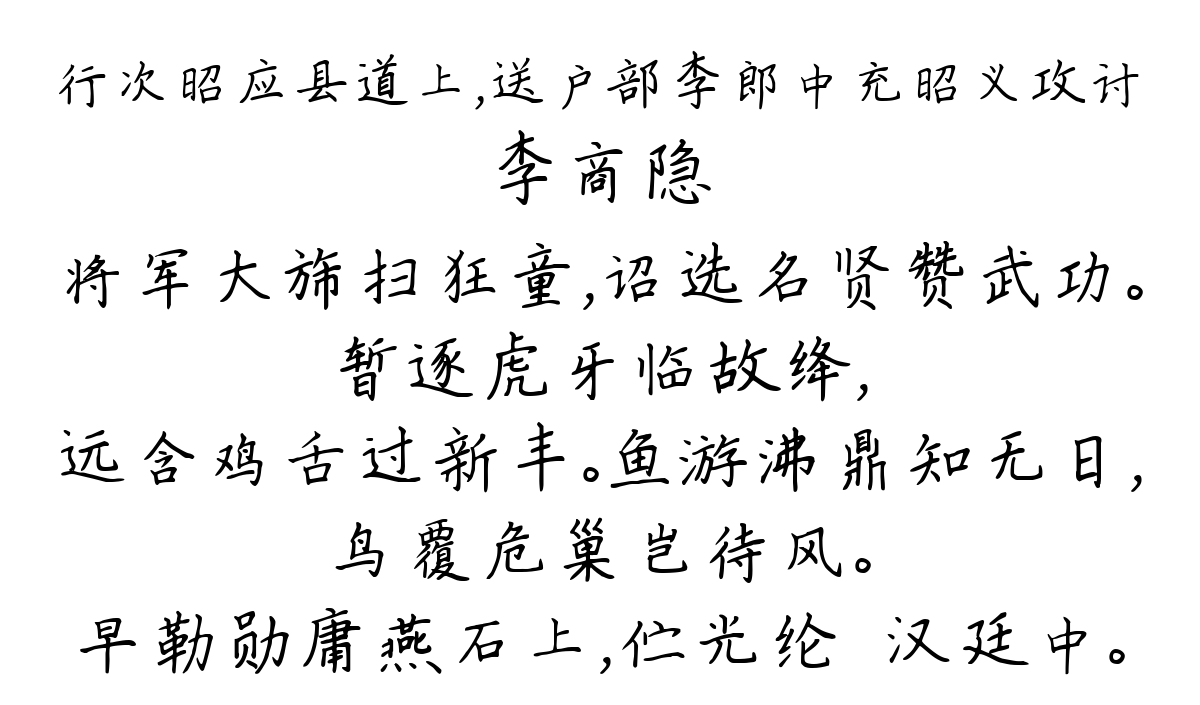 行次昭应县道上,送户部李郎中充昭义攻讨
李商隐
将军大旆扫狂童,诏选名贤赞武功。
暂逐虎牙临故绛,
远含鸡舌过新丰。鱼游沸鼎知无日,
鸟覆危巢岂待风。
早勒勋庸燕石上,伫光纶 汉廷中。